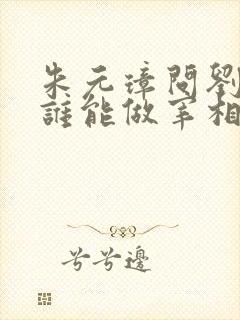 朱元璋問劉
誰能做宰相
兮兮邊